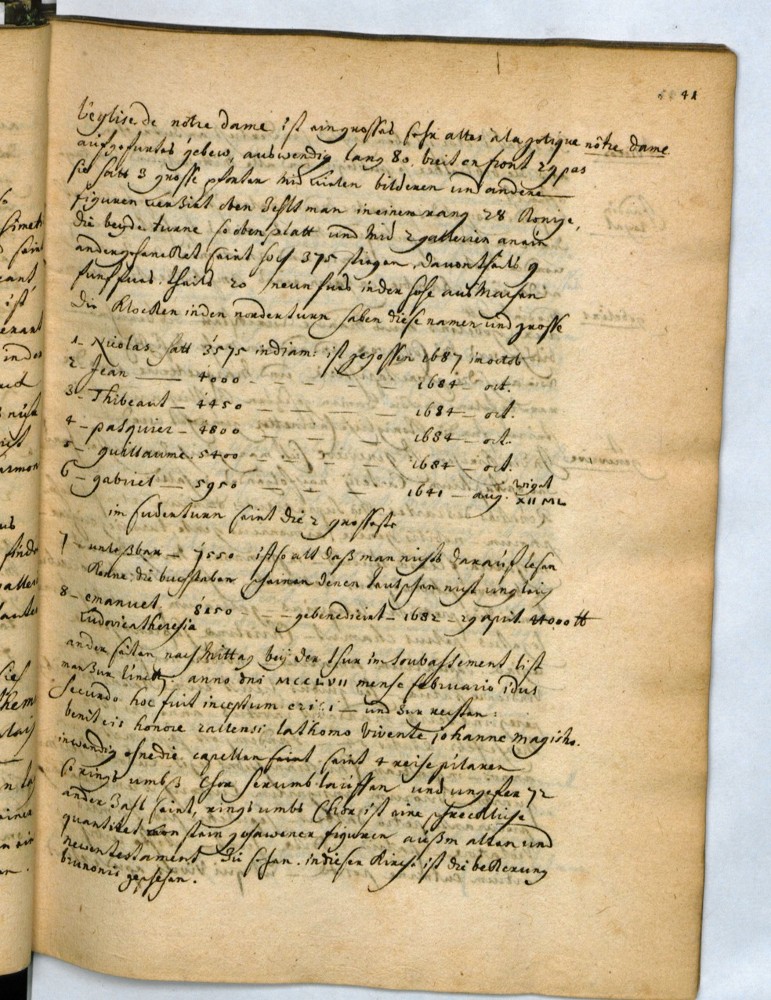 41
L'eglise de nôtre dame ist ein grosses sehr altes a la gotique nôtre dame
aufgefurtes gebew, auswendig lang 80. breit en front 29 pas
sie hatt 3 grosse pforten mid vielen bilderen und andere
figuren verziert oben zehlt man in einem rang 28 Konige,
die beyde turne so oben platt und mid 2 gallerien anein
ander gehencket seint hoch 375 stiegen, davon theils 9
funf fues. theils 20 neun fues in der hohe ausmachen
die Klocken in den norder turn haben diese namen und grosse
1 - Nicolas hatt 3575 in diam: ist gegossen 1687 in octob
2 - Jean — 4000 - - - - 1684 - oct.
3 - Thibeaut - 4450 - - - 1684 - oct.
4 - pasquier - 4800 - - - 1684 - oct.
5 - guillaume. 5400 - - - 1684 - oct.
6 - gabriel - 5950 - - - 1641 - aug. wigt XII ML
im suder turn seint die 2 grosseste
7 - unlesbar - 7550 ist so alt daß man nichts darauf lesen
Konne. die buchstaben scheinen denen teutschen nicht ungleig
8 - emanuel 8250 - - gebenedicirt - 1682 - 29 april 44000 lt
Ludovica theresia
ander seiten nach Mittag beij der thur im soubassement list
man zur linck: anno dni MCCLVII mense februario idus
secundo hoc fuit inceptum cristi — und zur rechten:
benitcis honore callensi lathomo vivente johanne magistro.
inwendig ohne die capellen seint 4 reihe pilaren
so rings umbs Chor herumb lauffen und ungefer 72
ander zahl seint, rings umbs Chor ist eine schreckliche
quantitet von stein gehawener figuren außm alten und
neuen testament zu sehen. in dieser Kirche ist die bekerung
brunonis geschehen.